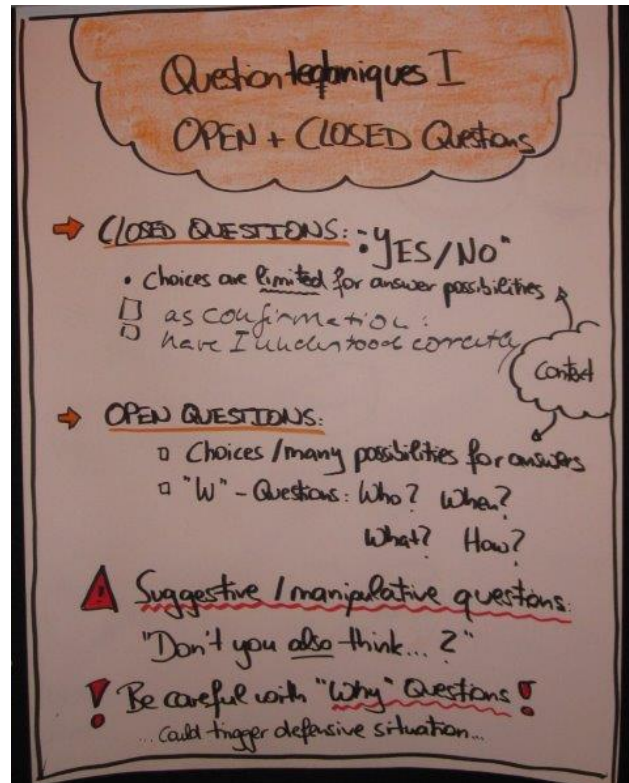 Question techniques I
OPEN + CLOSED Questions
CLOSED QUESTIONS: "YES/NO"
• Choices are limited for answer possibilities
as confirmation:
have I understood correctly
Context
OPEN QUESTIONS:
Choices / many possibilities for answers
"W" - Questions: Who? When?
What? How?
Suggestive / manipulative questions:
"Don't you also think... ?"
Be careful with "Why" Questions
... could trigger defensive situation...